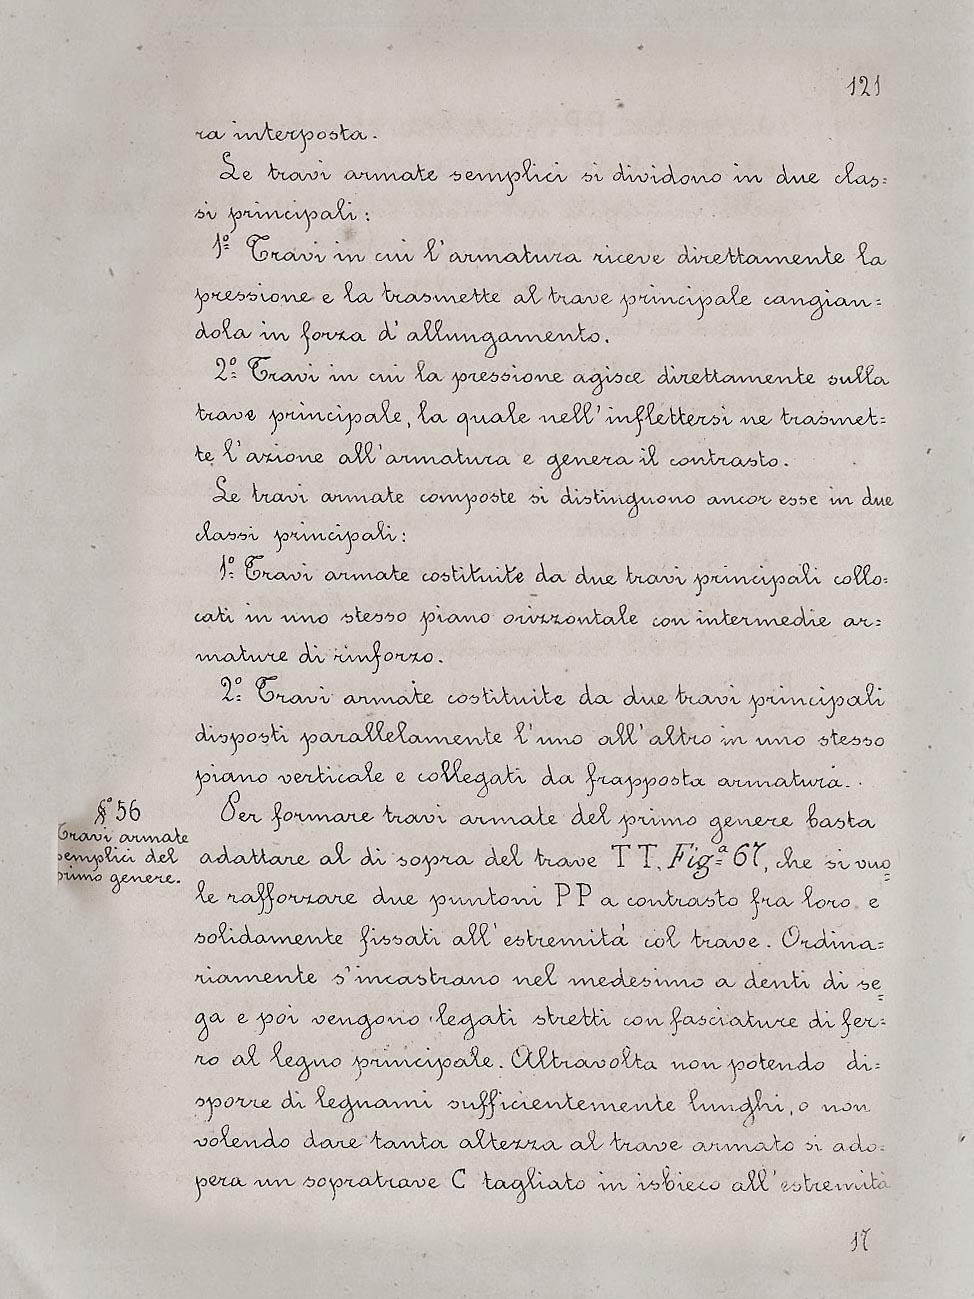 121
ra interposta.
Le travi armate semplici si dividono in due clas=
si principali:
1º Travi in cui l'armatura riceve direttamente la
pressione e la trasmette al trave principale cangian=
dola in forza d'allungamento.
2º Travi in cui la pressione agisce direttamente sulla
trave principale, la quale nell'inflettersi ne trasmet=
te l'azione all'armatura e genera il contrasto.
Le travi armate composte si distinguono ancor esse in due
classi principali:
1º Travi armate costituite da due travi principali collo=
cati in uno stesso piano orizzontale con intermedie ar=
mature di rinforzo.
2º Travi armate costituite da due travi principali
disposti parallelamente l'uno all'altro in uno stesso
piano verticale e collegati da frapposta armatura.
§º 56
Travi armate
semplici del
primo genere.
Per formare travi armate del primo genere basta
adattare al di sopra del trave TT, Figª 67, che si vuo=
le rafforzare due puntoni PP a contrasto fra loro e
solidamente fissati all'estremità col trave. Ordina=
riamente s'incastrano nel medesimo a denti di se=
ga e poi vengono legati stretti con fasciature di fer=
ro al legno principale. Altravolta non potendo di=
sporre di legnami sufficientemente lunghi, o non
volendo dare tanta altezza al trave armato si ado=
pera un sopratrave C tagliato in isbieco all'estremità
17